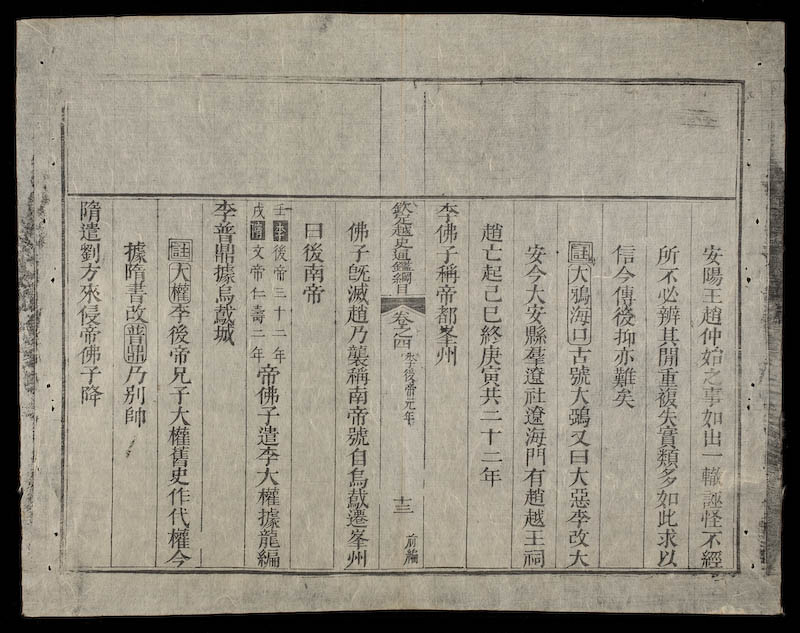 安陽王趙仲始之事如出一轍誣怪不經
所不必辨其間重複失實類多如此求以
信今傳後抑亦難矣
註大鴉海口古號大鵶又曰大惡李改大
安今大安縣羣遼社遼海門有趙越王祠
趙亡起己巳終庚寅共二十二年
李佛子稱帝都峯州
欽定越史通鑑綱目 卷之四 李後帝元年 十三 前編
佛子旣滅趙乃襲稱南帝號自烏鳶遷峯州
曰後南帝
壬戌 李後帝三十二年 隋文帝仁壽二年 帝佛子遣李大權據龍編
李普鼎據烏鳶城
註大權李後帝兄子大權舊史作代權今
據隋書改普鼎乃別帥
隋遣劉方來侵帝佛子降